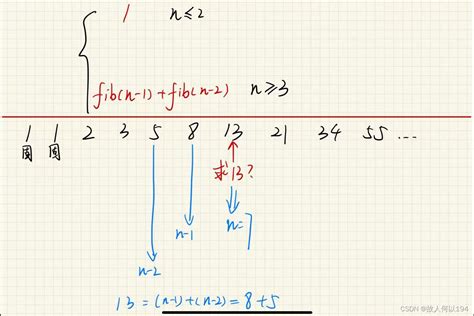 1 n≤2
fib(n-1)+fib(n-2) n≥3
1 1 2 3 5 8 13 21 34 55 ...
求13?
n=7
n-1
n-2
13=(n-1)+(n-2)=8+5
CSDN @故人何以194